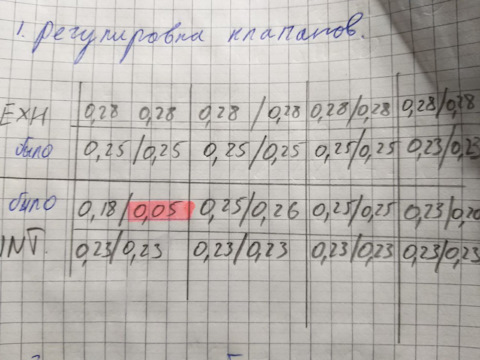 1. Регулировка клапанов.
EXH 0,28 0,28 0,28 / 0,28 0,28/0,28 0,28/0,28
было 0,25/0,25 0,25/0,25 0,25/0,25 0,23/0,23
было 0,18/0,05 0,25/0,26 0,25/0,25 0,23/0,20
INT. 0,23/0,23 0,23/0,23 0,23/0,23 0,23/0,23